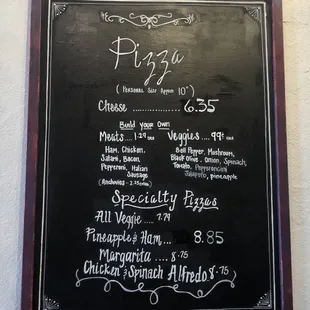 Pizza
(Personal Size Approx 10")
Cheese ............ 6.35
Build your Own
Meats....1.29 each
Ham, Chicken,
Salami, Bacon,
Pepperoni, Italian
Sausage
(Anchovies - 2.25 extra)
Veggies....99¢ each
Bell Pepper, Mushroom,
Black Olive, Onion, Spinach,
Tomato, Pepperoncini
Jalapeño, pineapple
Specialty Pizzas
All Veggie .... 7.79
Pineapple & Ham.... 8.85
Margarita .... 8.75
Chicken & Spinach Alfredo.8.75